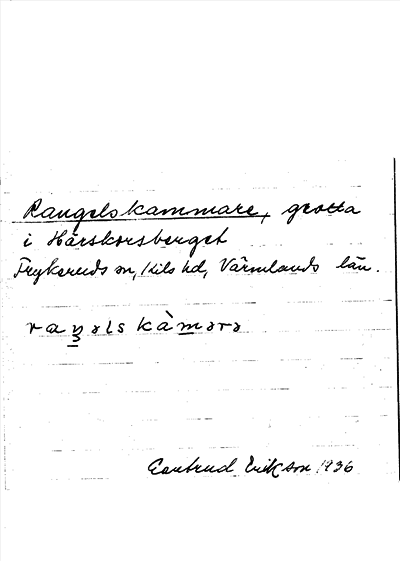 Rangelskammare, grotta
i Härskorsberget
Frykeruds sn, Kils hd, Värmlands län.
raŋəlskàmərə
Gertrud Erikson 1936